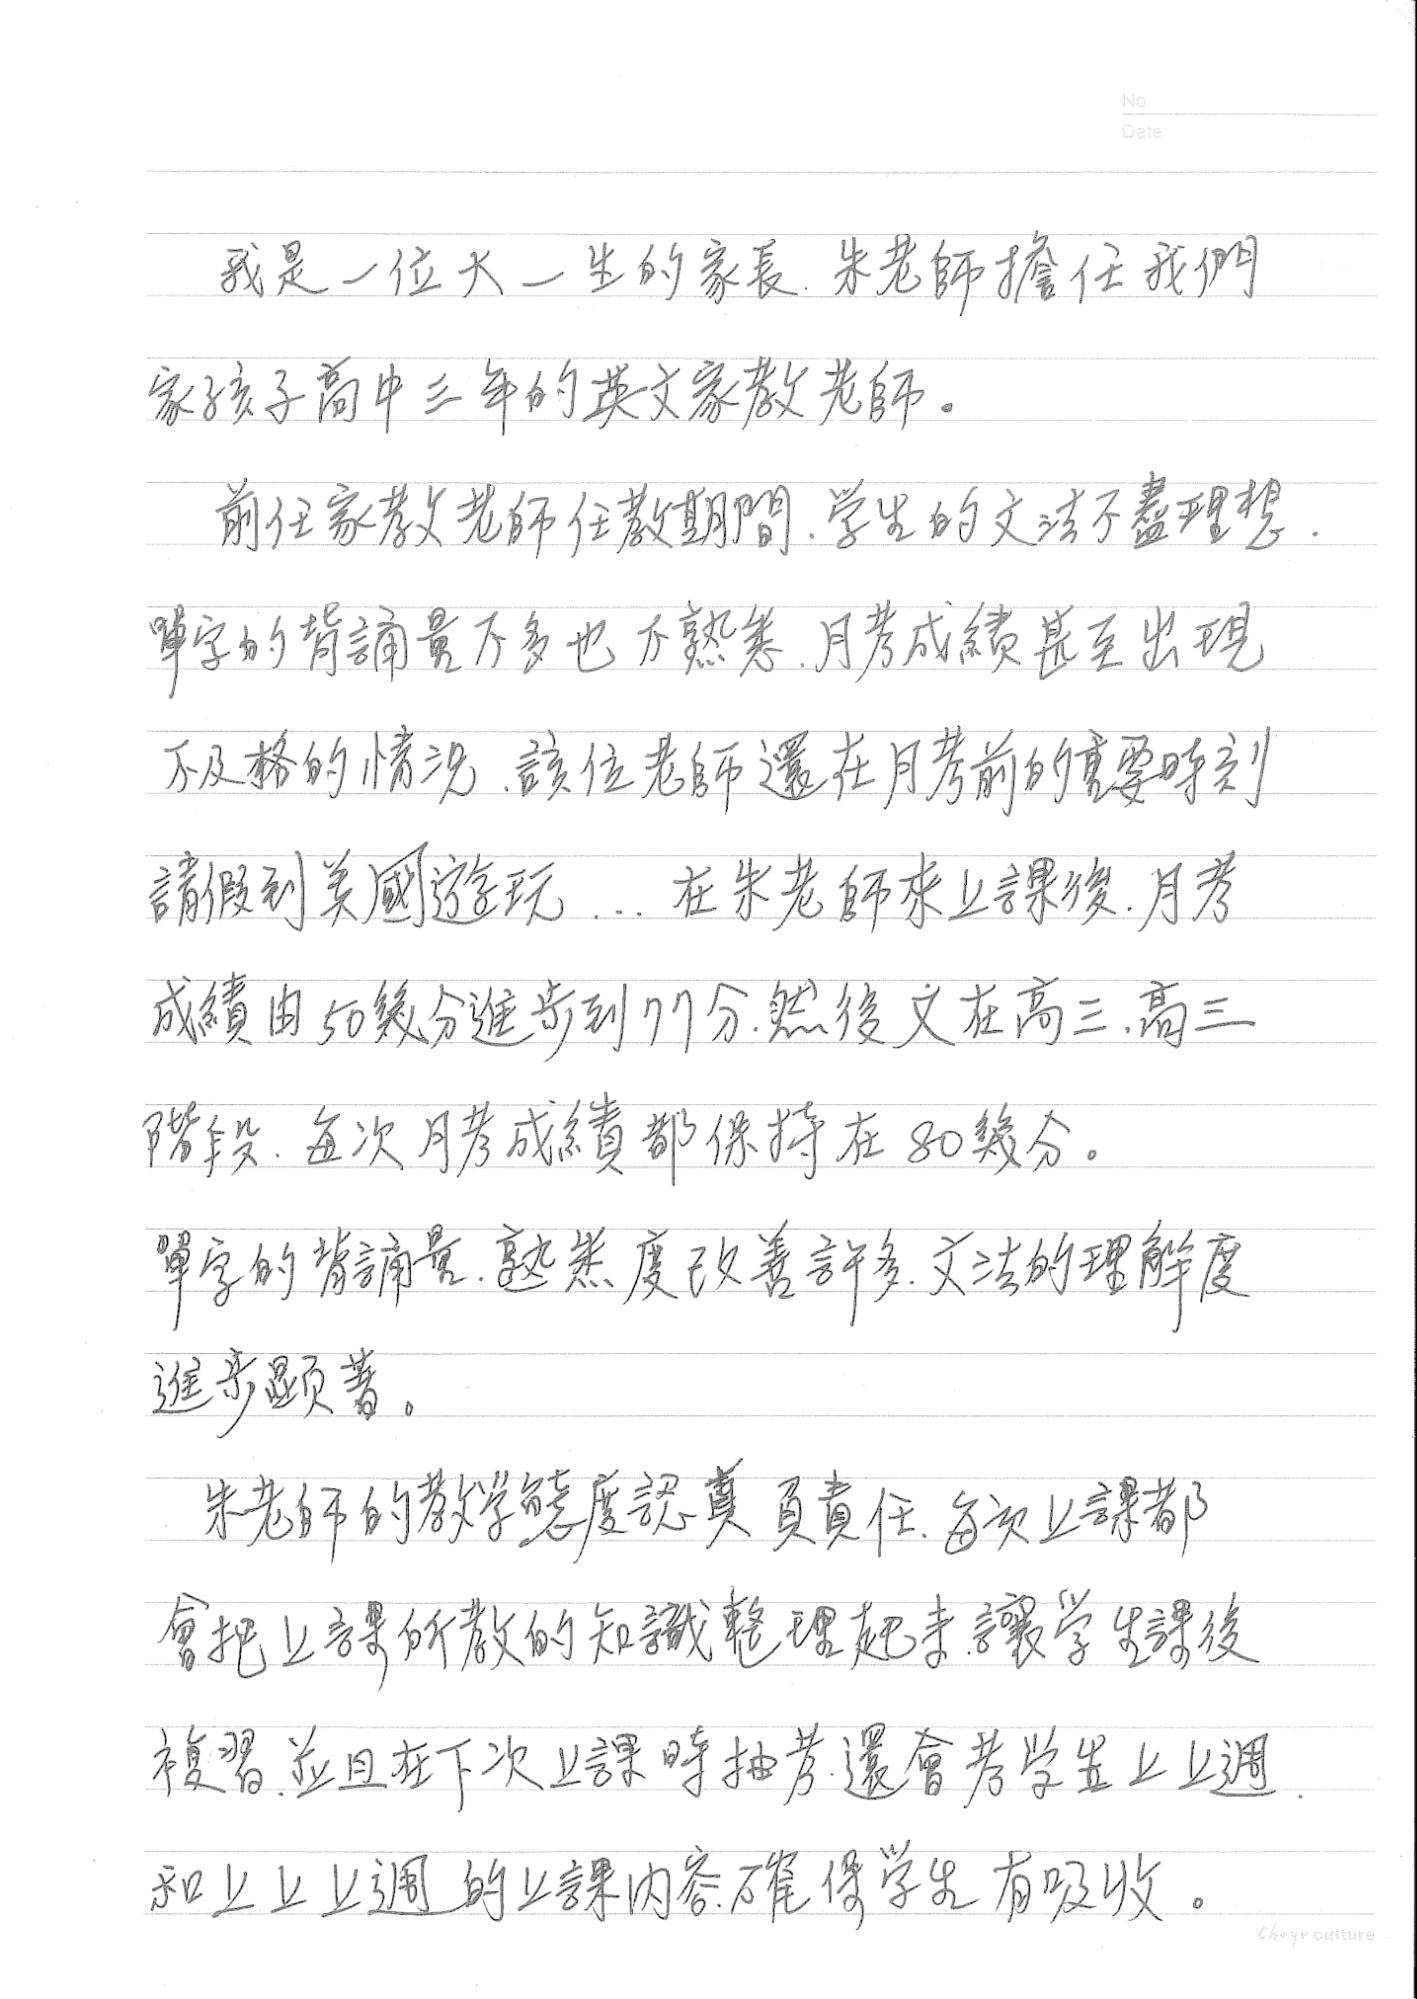 No.
Date
我是一位大一生的家長.朱老師擔任我們
家孩子高中三年的英文家教老師。
前任家教老師任教期間.學生的文法不盡理想.
單字的背誦量不多也不熟悉.月考成績甚至出現
不及格的情況.該位老師還在月考前的重要時刻
請假到美國遊玩...在朱老師來上課後.月考
成績由50幾分進步到77分.然後又在高二.高三
階段.每次月考成績都保持在80幾分。
單字的背誦量.熟悉度改善許多.文法的理解度
進步顯著。
朱老師的教學態度認真負責任.每次上課都
會把上課所教的知識整理起來.讓學生課後
複習.並且在下次上課時抽考.還會考學生上上週.
和上上上週的上課內容.確保學生有吸收。
Chuyu culture